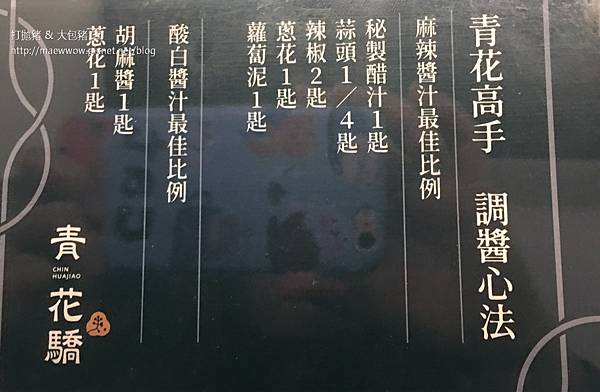 打拋豬 & 大包豬
http://maewwow.pixnet.net/blog
青花高手 調醬心法
麻辣醬汁最佳比例
秘製醋汁1匙
蒜頭1／4匙
辣椒2匙
蔥花1匙
蘿蔔泥1匙
酸白醬汁最佳比例
胡麻醬1匙
蔥花1匙
青花驕
CHIN
HUAJIAO